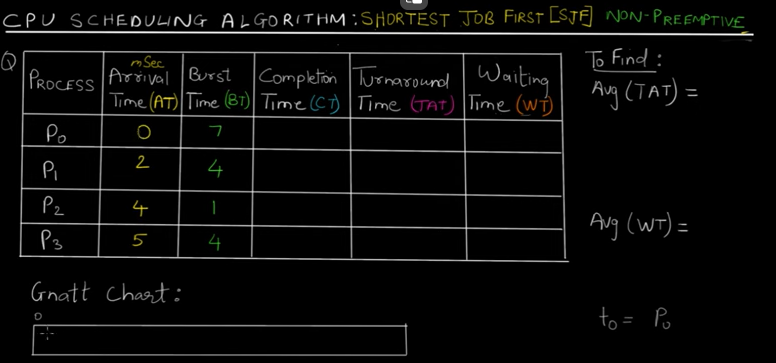 CPU SCHEDULING ALGORITHM: SHORTEST JOB FIRST [SJF] NON-PREEMPTIVE
Q PROCESS mSec Arrival Time (AT) Burst Time (BT) Completion Time (CT) Turnaround Time (TAT) Waiting Time (WT)
P0 0 7
P1 2 4
P2 4 1
P3 5 4
To Find:
Avg (TAT) =
Avg (WT) =
Gnatt Chart:
0
t0 = P0